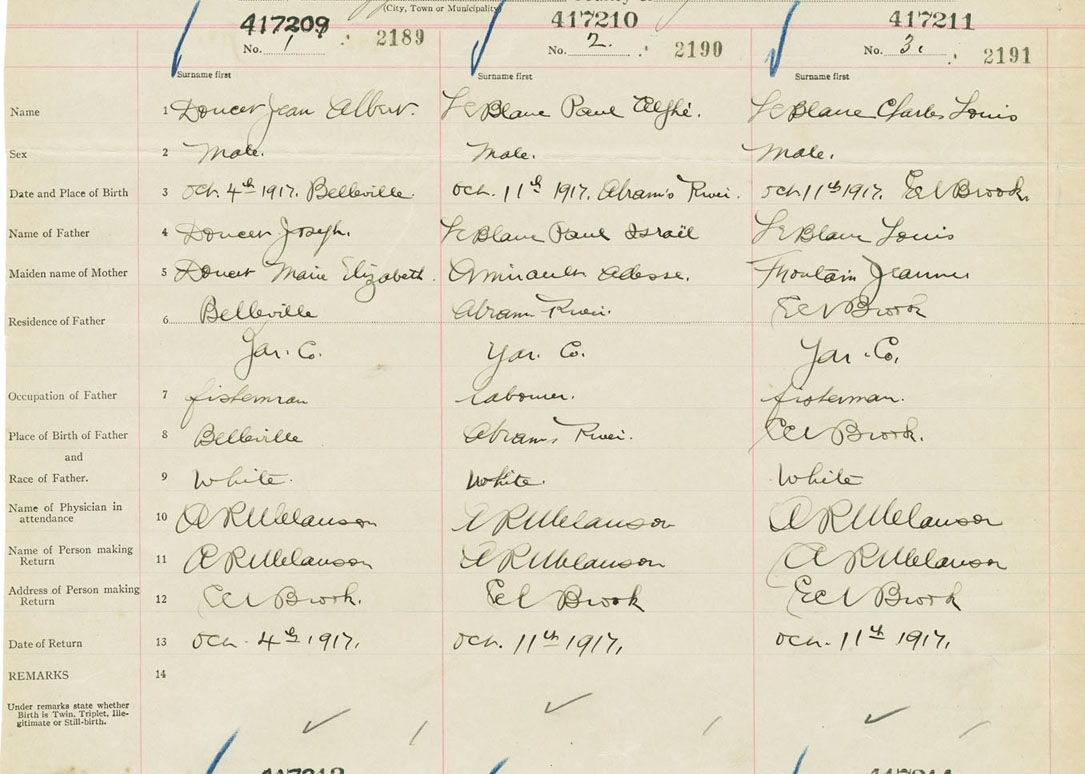 (City, Town or Municipality)
417209 417210 417211
No. 1 2189 No. 2. 2190 No. 3. 2191
Surname first Surname first Surname first
Name 1 Doucet Jean Albert. LeBlanc Paul LeBlanc Charles Louis
Sex 2 Male. Male. Male.
Date and Place of Birth 3 Oct. 4th 1917. Belleville. Oct. 11th 1917. Abram's River. Oct. 11th 1917. Eel Brook.
Name of Father 4 Doucet Joseph. LeBlanc Paul Israël LeBlanc Louis
Maiden name of Mother 5 Doucet Marie Elizabeth. Amirault Adesse. Jeanne
Residence of Father 6 Belleville Abrams River. Eel Brook
Yar. Co. Yar. Co. Yar. Co.
Occupation of Father 7 fisherman labourer. fisherman.
Place of Birth of Father 8 Belleville Abrams River. Eel Brook.
and
Race of Father. 9 White. White. White
Name of Physician in attendance 10 A R Melanson A R Melanson A R Melanson
Name of Person making Return 11 A R Melanson A R Melanson A R Melanson
Address of Person making Return 12 Eel Brook. Eel Brook Eel Brook
Date of Return 13 Oct. 4th 1917. Oct. 11th 1917. Oct. 11th 1917.
REMARKS 14
Under remarks state whether
Birth is Twin, Triplet, Ille-
gitimate or Still-birth.